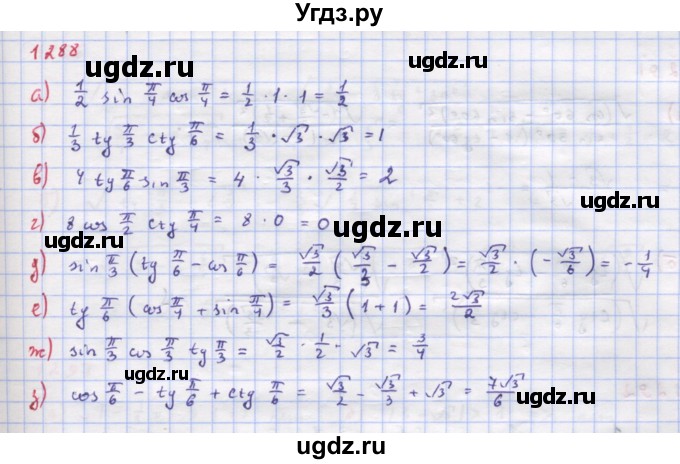 Угдз.ру
1288
ugdz.ru ugdz.ru
а) 1/2 sin π/4 cos π/4 = 1/2 · 1 · 1 = 1/2
б) 1/3 tg π/3 ctg π/6 = 1/3 · √3 · √3 = 1
ugdz.ru ugdz.ru
в) 4 tg π/6 sin π/3 = 4 · √3/3 · √3/2 = 2
г) 8 cos π/2 ctg π/4 = 8 · 0 = 0
ugdz.ru ugdz.ru
д) sin π/3 (tg π/6 - cos π/6) = √3/2 (√3/3 - √3/2) = √3/2 · (-√3/6) = -1/4
е) tg π/6 (cos π/4 + sin π/4) = √3/3 (1+1) = 2√3/2
ugdz.ru ugdz.ru
ж) sin π/3 cos π/3 tg π/3 = √3/2 · 1/2 · √3 = 3/4
з) cos π/6 - tg π/6 + ctg π/6 = √3/2 - √3/3 + √3 = 7√3/6
ugdz.ru ugdz.ru